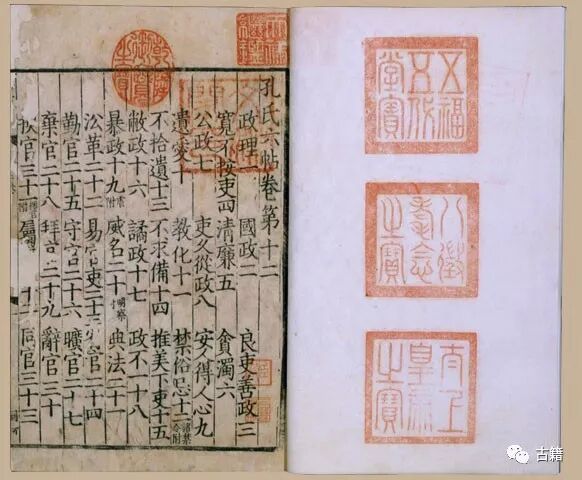 五福五代堂寶
八徵耄念之寶
太上皇帝之寶
天祿繼鑑
乾隆御覽之寶
孔氏六帖卷第十二
政理一 國政二 良吏善政三
寬不按吏四 清廉五 貪濁六
公政七 吏久從政八 安人得人心九
遺愛十 教化十一 禁俗忌十二 諸禁令附
不拾遺十三 不求備十四 推美下吏十五
敝政十六 譎政十七 政不一十八
暴政十九 虐附 威名二十 明察 典法二十一
㳂革二十二 易官吏二十三 官二十四
勤官二十五 守官二十六 曠官二十七
棄官二十八 拜官二十九 辭官三十
官三十一 同官三十三
古籍